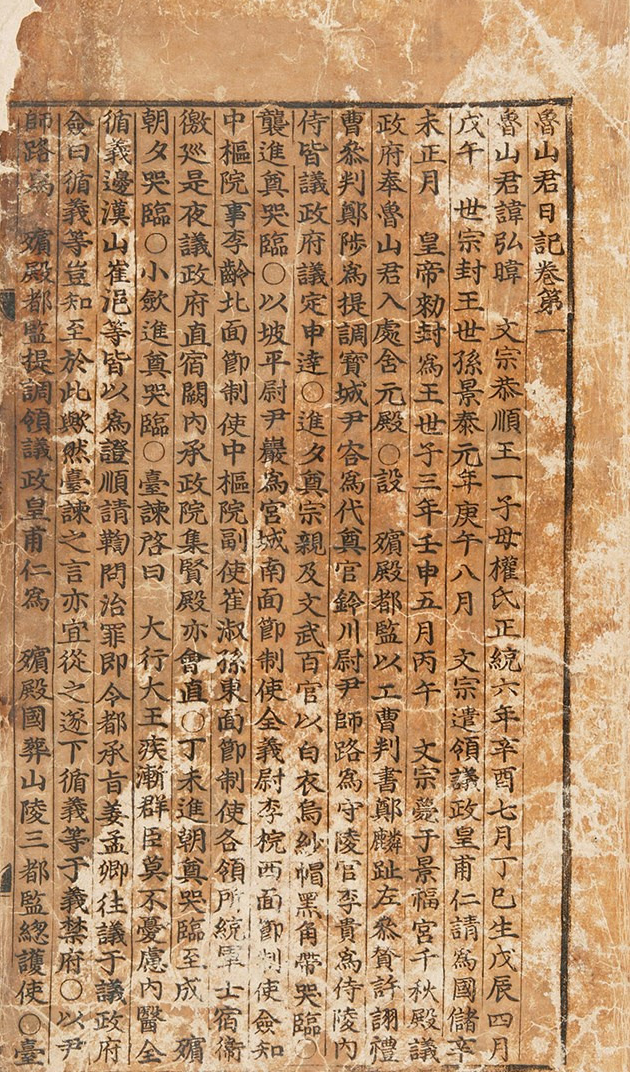 魯山君日記卷第一
魯山君諱弘暐 文宗恭順王一子母權氏正統六年辛酉七月丁巳生戊辰四月
戊午 世宗封王世孫景泰元年庚午八月 文宗遣領議政皇甫仁請爲國儲辛
未正月 皇帝勑封爲王世子三年壬申五月丙午 文宗薨于景福宮千秋殿議
政府奉魯山君入處含元殿○設 殯殿都監以工曹判書鄭麟趾左叅賛許詡禮
曹叅判鄭陟爲提調寶城尹容爲代奠官鈴川尉尹師路爲守陵官李貴爲侍陵內
侍皆議政府議定申達○進夕奠宗親及文武百官以白衣烏紗帽黑角帶哭臨○
襲進奠哭臨○以坡平尉尹巖爲宮城南面節制使全義尉李梡西面節制使僉知
中樞院事李齡北面節制使中樞院副使崔淑孫東面節制使各領所統軍士宿衛
徼巡是夜議政府直宿闕內承政院集賢殿亦會直○丁未進朝奠哭臨至成 殯
朝夕哭臨○小斂進奠哭臨○臺諫啓曰 大行大王疾漸群臣莫不憂慮內醫全
循義邊漢山崔浥等皆以爲證順請鞫問治罪即令都承旨姜孟卿往議于議政府
僉曰循義等豈知至於此歟然臺諫之言亦宜從之遂下循義等于義禁府○以尹
師路爲 殯殿都監提調領議政皇甫仁爲 殯殿國葬山陵三都監緫護使○臺